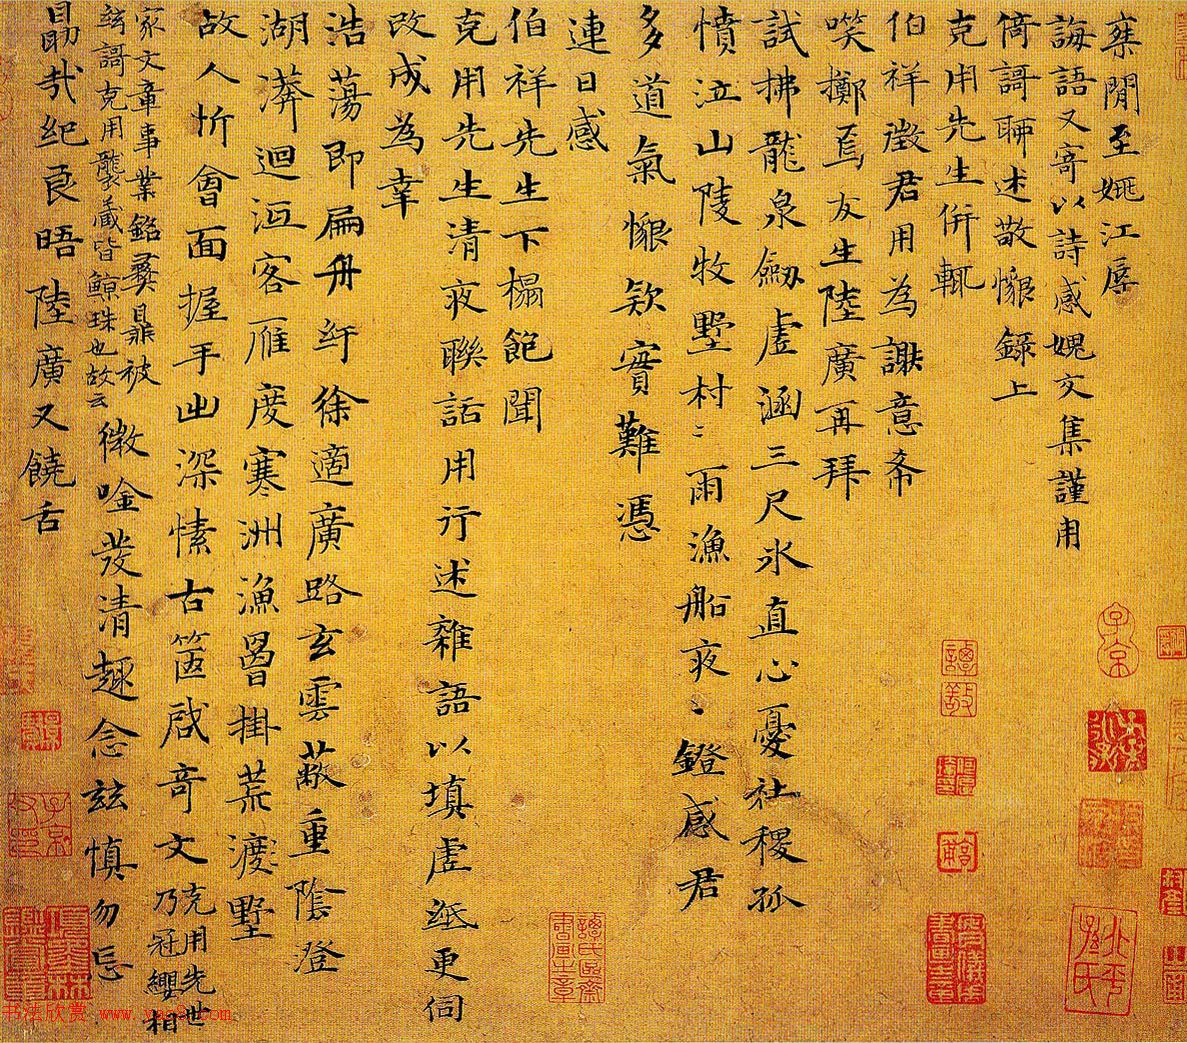 棄閒至姚江辱
誨語又寄以詩感媿交集謹用
倚謌聊述敬懷錄上
克用先生併輒
伯祥徵君用為謝意希
笑擲焉友生陸廣再拜
試拂龍泉劒虛涵三尺水直心憂社稷孤
憤泣山陵牧墅村〻雨漁船夜〻鐙感君
多道氣懷欵實難憑
連日感
伯祥先生下榻飽聞
克用先生清夜聯話用行述雜語以填虛紙更伺
改成為幸
浩蕩即扁舟紆徐適廣路玄雲蔽重陰澄
湖漭迴沍客雁度寒洲漁罾掛荒渡墅
故人忻會面握手出深愫古篋啟奇文克用先世
乃冠纓相
家文章事業銘彝鼎被
兹謌克用襲藏皆鯨珠也故云
微唫發清趣念兹慎勿忘
勗哉紀良晤陸廣又饒舌
书法欣赏